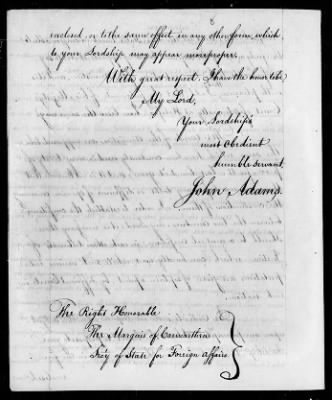 enclosed, or to the same effect in any other form, which
to your Lordship may appear more proper.
With great respect, I have the honor to be
My Lord,
Your Lordship's
most Obedient
humble servant.
John Adams.
The Right Honorable
The Marquis of Carmarthen
Secy of State for Foreign Affairs